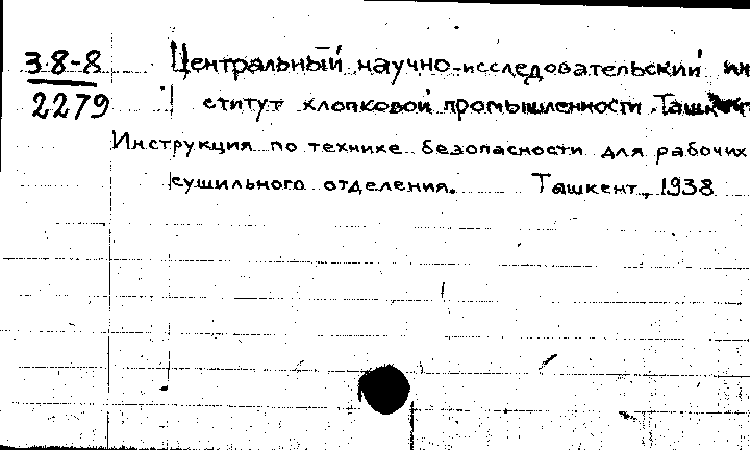 38-8
2279
Центральный научно-исследовательский ин
ститут хлопковой промышленности. Ташкент
Инструкция по технике безопасности для рабочих
сушильного отделения. Ташкент, 1938